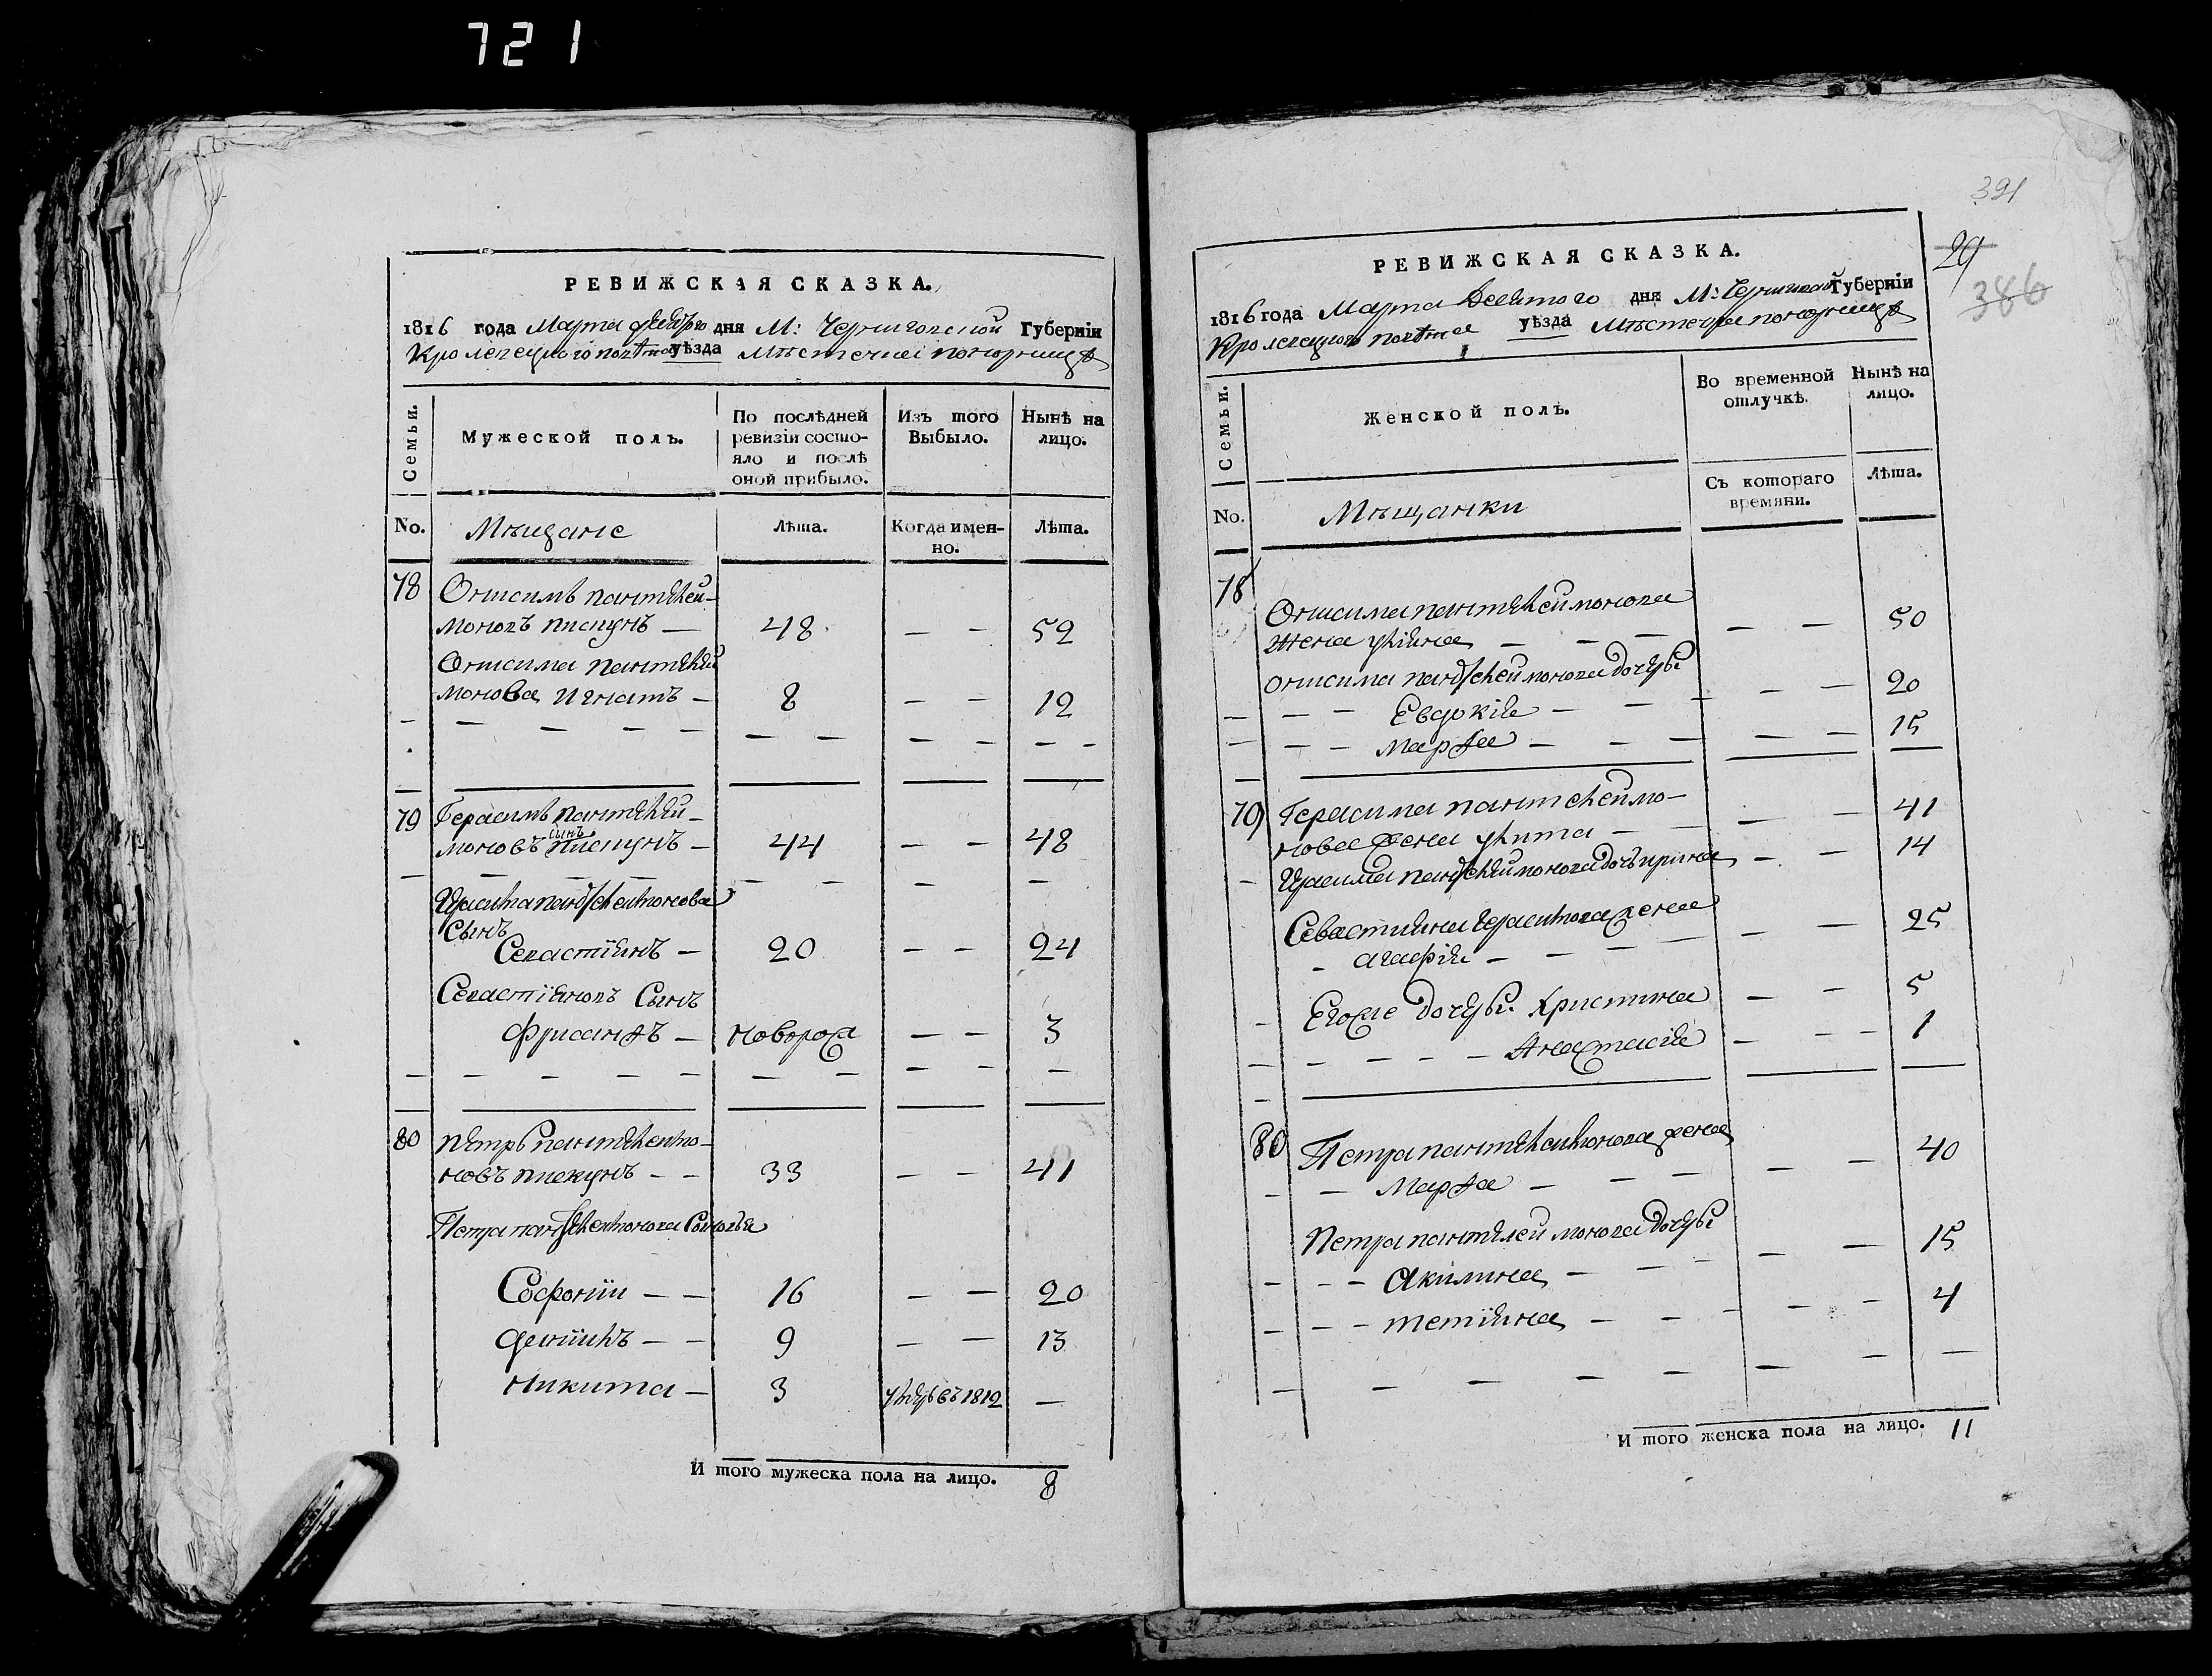 721
РЕВИЖСКАЯ СКАЗКА.
1816 года Марта десятого дня М: Черниговской Губерніи
Кролевецкого повѣта уѣзда Мѣстечка Понорницѣ
Семьи.
Мужеской полъ.
По послѣдней ревизіи состояло и послѣ оной прибыло.
Изъ того Выбыло.
Нынѣ на лицо.
No. Мѣщане Лѣта. Когда именно. Лѣта.
78 Онисимъ Пантелей-
моновъ Пискунъ — 48 — — 52
Онисима Пантелей
монова Игнатъ — 8 — — 12
79 Герасимъ Пантелей-
моновъ сынъ Пискунъ — 44 — — 48
Герасима Пантелеймонова
Сынъ
Севастіянъ — 20 — — 24
Севастіяновъ Сынъ
Фрисанфъ — новорож 3
80 Петръ Пантелеймо-
новъ Пискунъ — — 33 — — 41
Петра Пантелеймонова Сыновья
Софоніи — — 16 — — 20
— — 9 — — 13
Никита — 3 умеръ въ 1812 —
И того мужеска пола на лицо. 8
391
29
386
РЕВИЖСКАЯ СКАЗКА.
1816 года Марта Десятого дня М: Черниговской Губерніи
Кролевецкого повѣта уѣзда Мѣстечка Понорницѣ
Семьи.
Женской полъ.
Во временной отлучкѣ.
Нынѣ на лицо.
No. Мѣщанки Съ котораго времяни. Лѣта.
78 Онисима Пантелеймонова
жена Уліяна — — — — — 50
Онисима Пантелеймонова дочери
Евдокія — — — 20
Марфа — — — 15
79 Герасима Пантелеймо-
нова жена Улита — — 41
Герасима Пантелеймонова дочь Ирина — — 14
Севастияна Герасимова жена
Агафія — — — 25
Егоже дочери: Христина — — 5
Анастасія — — — 1
80 Петра Пантелеймонова жена
Марфа — — — 40
Петра Пантелеймонова дочери
Акилина — — — 15
Тетіяна — — — 4
И того женска пола на лицо. 11